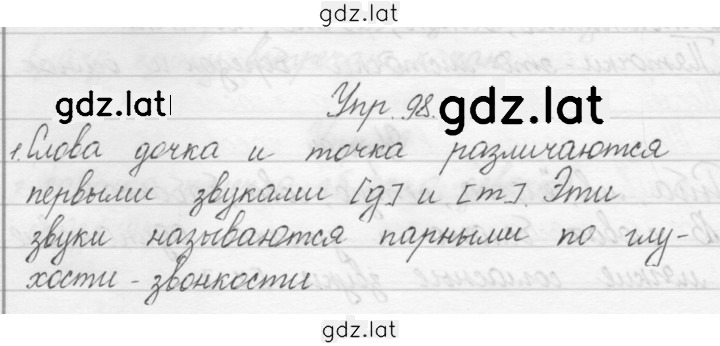 gdz.lat
gdz.lat
Упр. 98.
gdz.lat
1. Слова дочка и точка различаются
первыми звуками [д] и [т]. Эти
звуки называются парными по глу-
хости - звонкости
gdz.lat